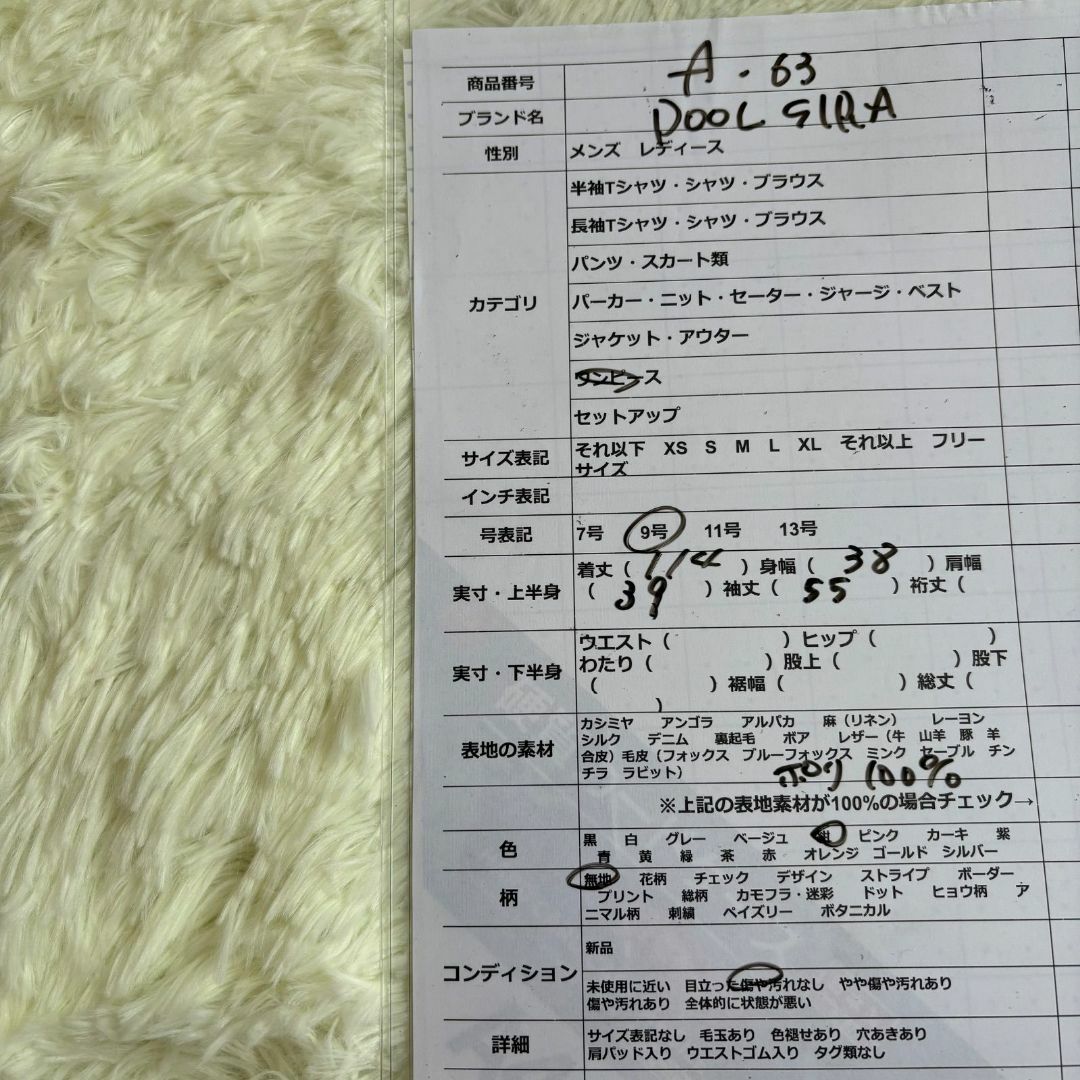 商品番号 A・63
ブランド名 POOL SIDA
性別 メンズ レディース
カテゴリ
半袖Tシャツ・シャツ・ブラウス
長袖Tシャツ・シャツ・ブラウス
パンツ・スカート類
パーカー・ニット・セーター・ジャージ・ベスト
ジャケット・アウター
ワンピース
セットアップ
サイズ表記 それ以下 XS S M L XL それ以上 フリー
サイズ
インチ表記
号表記 7号 9号 11号 13号
実寸・上半身 着丈（ 114 ）身幅（ 38 ）肩幅
（ 39 ）袖丈（ 55 ）裄丈（
実寸・下半身
ウエスト（ ）ヒップ（ ）
わたり（ ）股上（ ）股下
（ ）裾幅（ ）総丈（
）
表地の素材
カシミヤ アンゴラ アルパカ 麻（リネン） レーヨン
シルク デニム 裏起毛 ボア レザー（牛 山羊 豚 羊
合皮）毛皮（フォックス ブルーフォックス ミンク セーブル チン
チラ ラビット） ポリ 100%
※上記の表地素材が100%の場合チェック→
色
黒 白 グレー ベージュ 紺 ピンク カーキ 紫
青 黄 緑 茶 赤 オレンジ ゴールド シルバー
柄
無地 花柄 チェック デザイン ストライプ ボーダー
プリント 総柄 カモフラ・迷彩 ドット ヒョウ柄 ア
ニマル柄 刺繍 ペイズリー ボタニカル
コンディション
新品
未使用に近い 目立った傷や汚れなし やや傷や汚れあり
傷や汚れあり 全体的に状態が悪い
詳細
サイズ表記なし 毛玉あり 色褪せあり 穴あきあり
肩パッド入り ウエストゴム入り タグ類なし